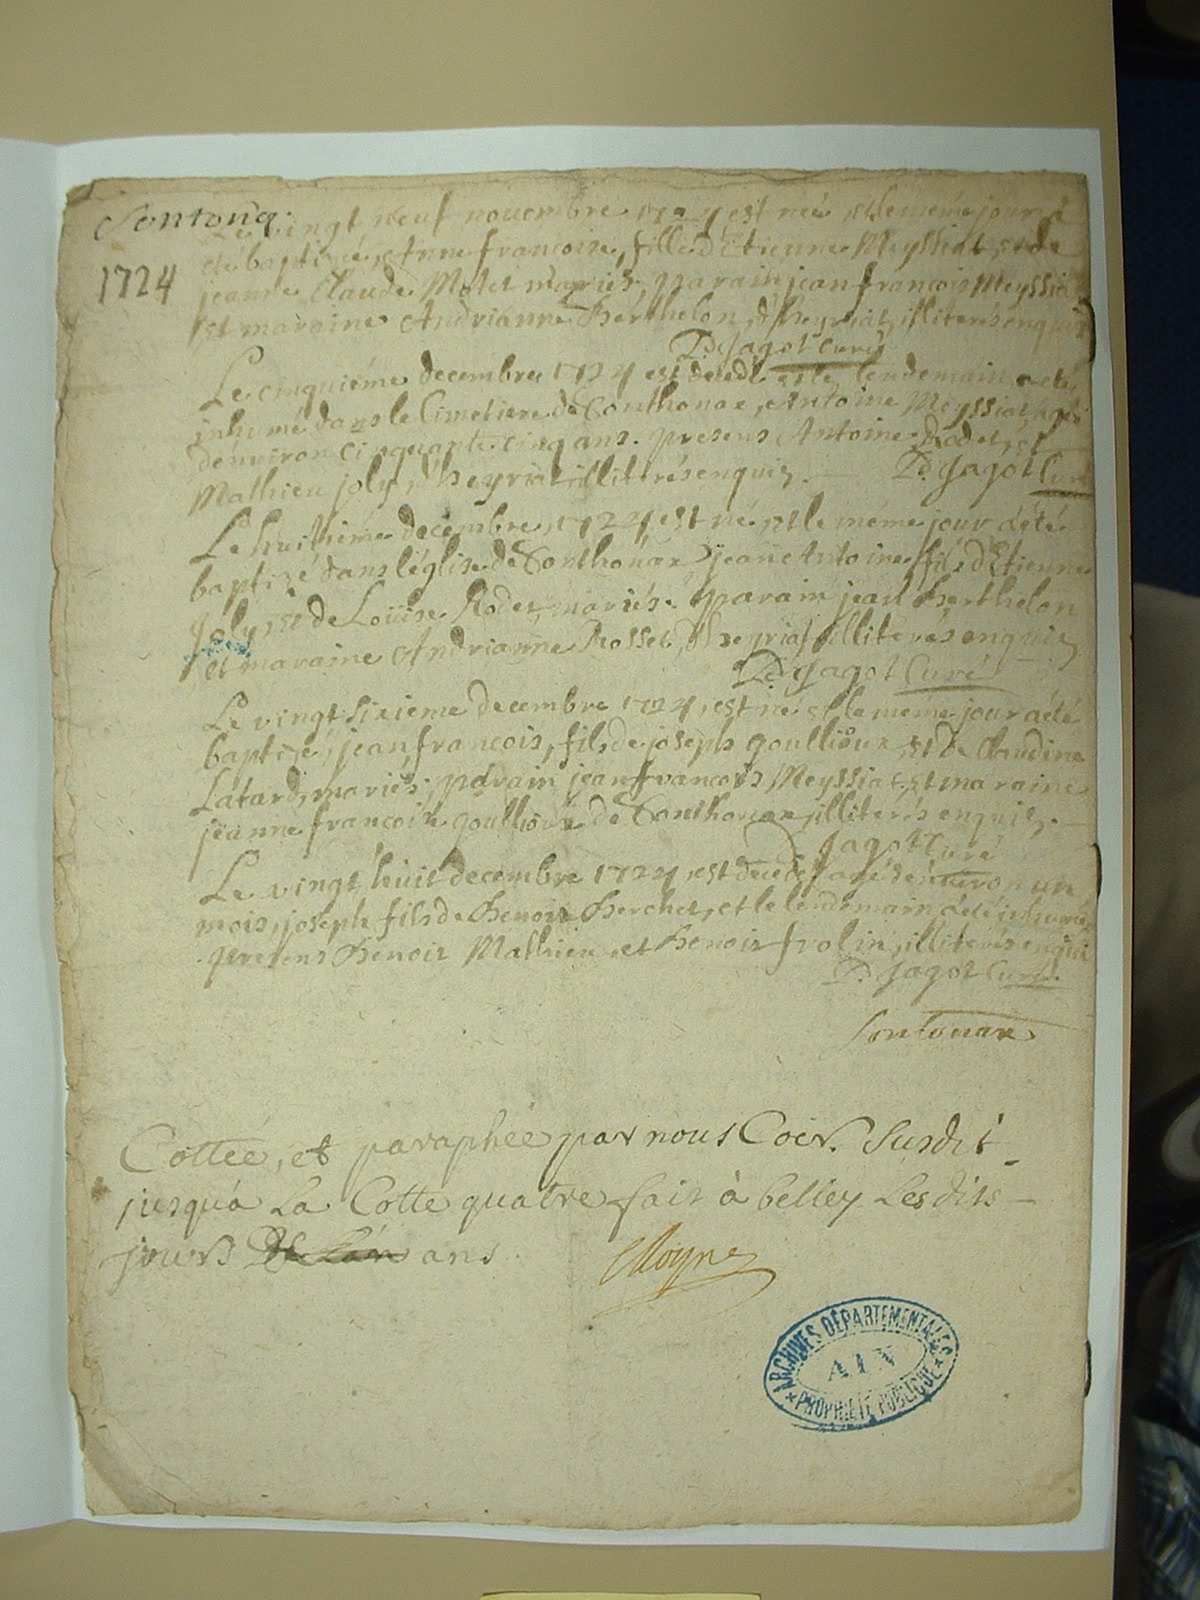 Sontona
1724
Le vingt neuf novembre 1724 est née, et le même jour a
eté baptizé, Anne françoise, fille d'Etienne Meyssiat, et de
jeanne Claude Motet mariés, parain jean françois Meyssia
et maraine Andrianne Berthelon, d'heyriat, illiterés enquis
D. Jagot Curé
Le cinquiéme decembre 1724 est decedé et le lendemain a eté
inhumé dans le Cimetiere de Sonthonax, Antoine Meyssiat, agé
d'environ cinquante cinq ans. presens Antoine Rodet, et
Mathieu joly, d'heyriat illiterés enquis. D. Jagot Curé
Le huitiéme decembre, 1724 est né, et le même jour a été
baptizé dans l'église de Sonthonax jean Antoine fils d'Etienne
Joly, et de Loüise Rodet, mariés. parain jean Berthelon
et maraine Andrianne Rosset, d'heyriat illiterés enquis
D. Jagot Curé
Le vingt sixieme decembre 1724, est né et le même jour a été
baptizé, jean françois, fils de joseph goullioux, et de Claudine
Latard, mariés, parain jean françois Meyssiat, et maraine
jeanne françoise goullioux de Sonthonax, illiterés enquis.
Jagot Curé
Le vingt huit decembre 1724, est decedé agé d'environ un
mois, joseph fils de Benoit Berchet, et le lendemain a été inhumé,
presens Benoit Mathieu, et Benoit frolin, illiterés enquis
D. Jagot Curé.
Sontonax
Cottée, et paraphée par nous Coer. Susdit
jusqu'a La Cotte quatre fait à belley Les dits
jours et ans
Moyne
ARCHIVES DÉPARTEMENTALES
AIN
PROPRIÉTÉ PUBLIQUE